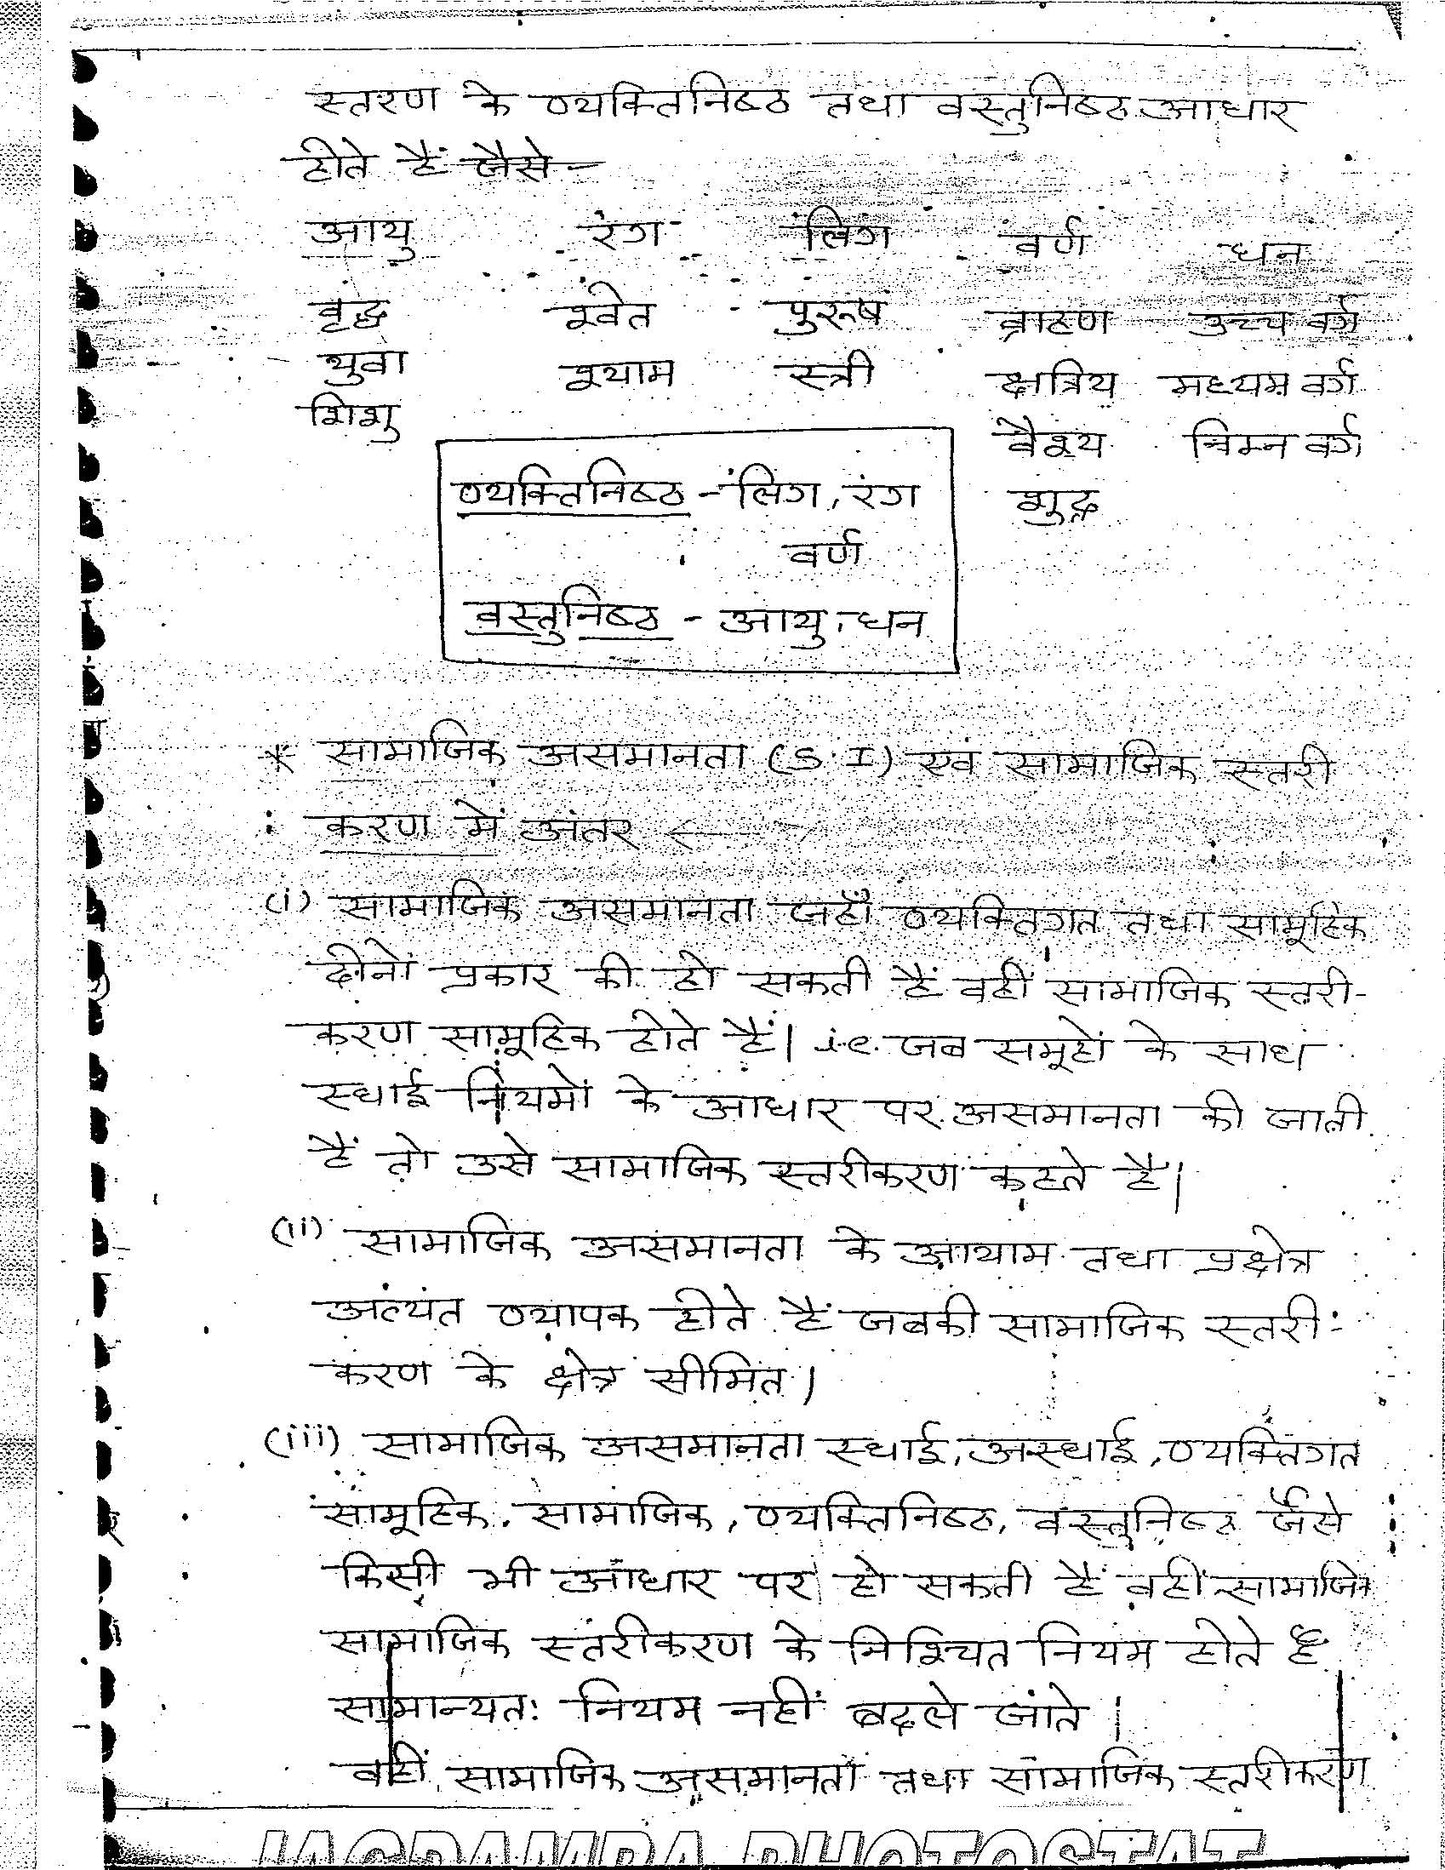 स्तरण के व्यक्तिनिष्ठ तथा वस्तुनिष्ठ आधार
होते हैं जैसे -
आयु रंग लिंग वर्ण धन
वृद्ध श्वेत पुरूष ब्राहण उच्च वर्ग
युवा श्याम स्त्री क्षत्रिय मध्यम वर्ग
शिशु वैश्य निम्न वर्ग
व्यक्तिनिष्ठ - लिंग, रंग शुद्र
वर्ण
वस्तुनिष्ठ - आयु, धन
* सामाजिक असमानता (S.I) एवं सामाजिक स्तरी
करण में अंतर ←
(i) सामाजिक असमानता जहाँ व्यक्तिगत तथा सामूहिक
दोनों प्रकार की हो सकती हैं वहीं सामाजिक स्तरी-
करण सामूहिक होते हैं। i.e. जब समूहों के साथ
स्थाई नियमों के आधार पर असमानता की जाती
हैं तो उसे सामाजिक स्तरीकरण कहते है।
(ii) सामाजिक असमानता के आयाम तथा प्रक्षेत्र
अत्यंत व्यापक होते हैं जबकी सामाजिक स्तरी-
करण के क्षेत्र सीमित।
(iii) सामाजिक असमानता स्थाई, अस्थाई, व्यक्तिगत
सामूहिक, सामाजिक, व्यक्तिनिष्ठ, वस्तुनिष्ठ जैसे
किसी भी आधार पर हो सकती हैं वहीं सामाजिक
सामाजिक स्तरीकरण के निश्चित नियम होते हैं
सामान्यतः नियम नहीं बदले जाते।
वहीं सामाजिक असमानता तथा सामाजिक स्तरीकरण
JAGDAMBA PHOTOSTAT